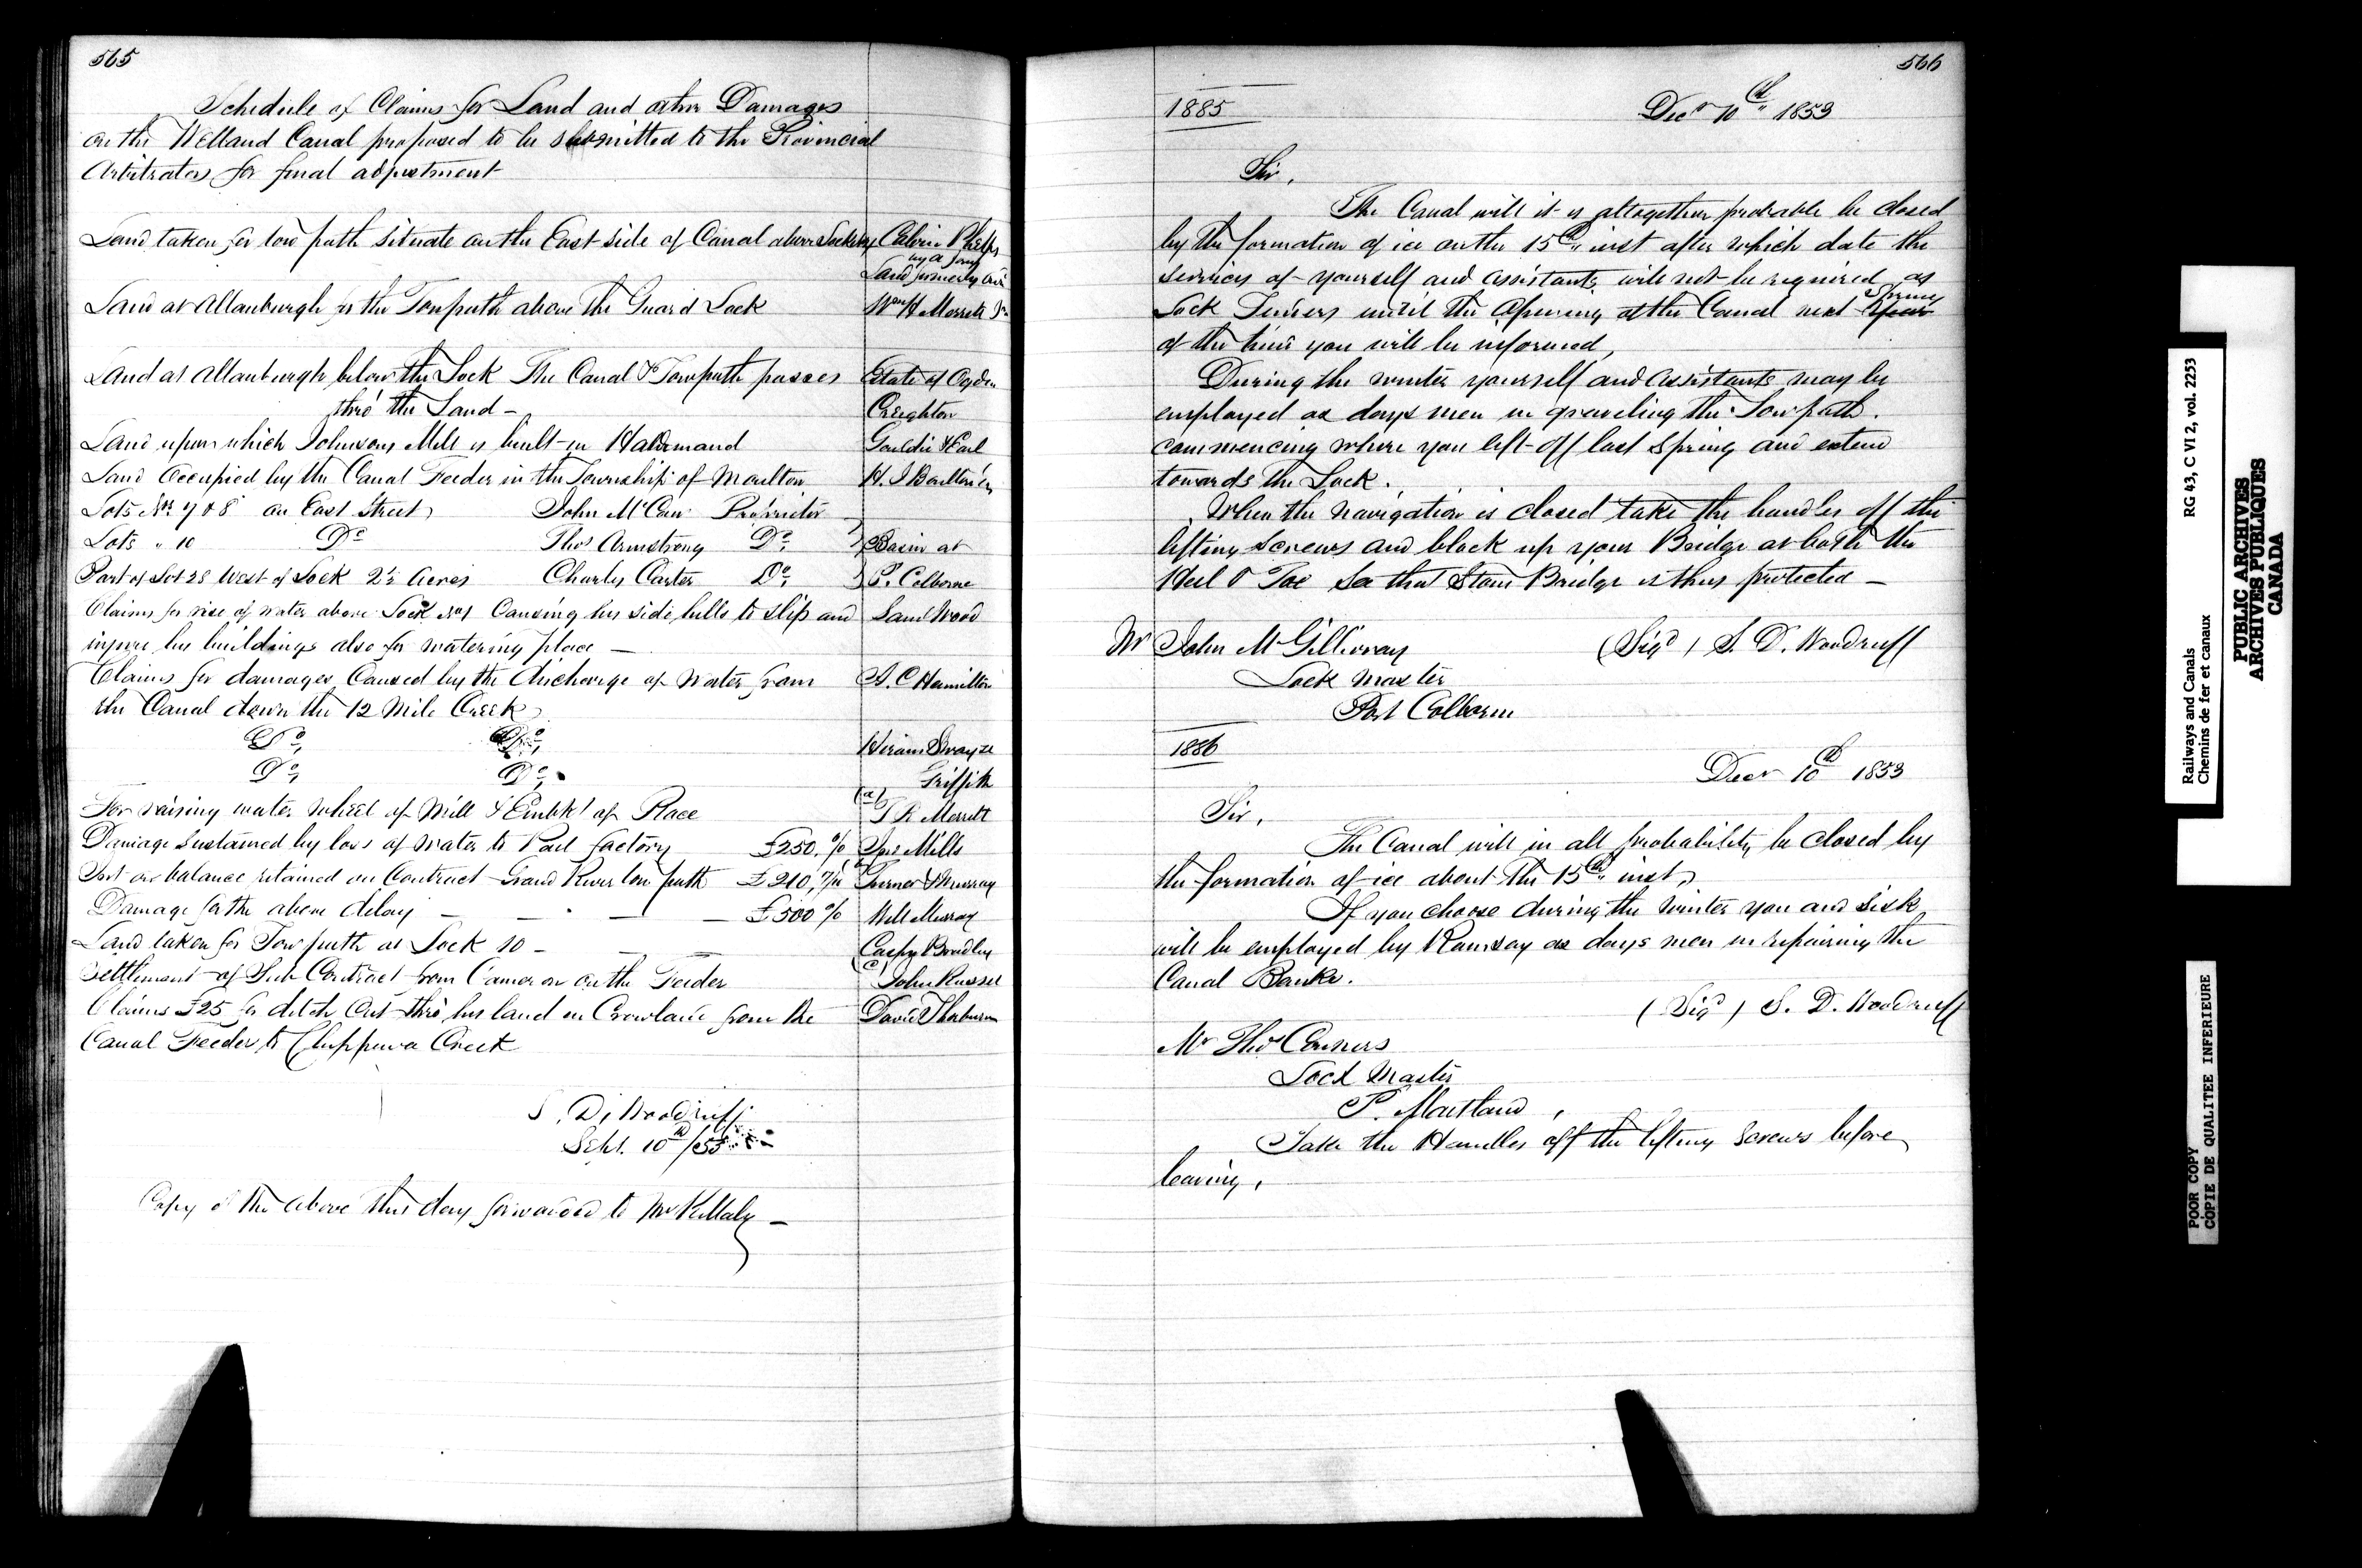 565
Schedule of Claims for Land and other Damages
on the Welland Canal proposed to be submitted to the Provincial
Arbitrators for final adjustment
Land taken for tow path situate on the East side of Canal above Lock Calvin Phelps
Land formerly
Land at Allanburgh for the Towpath above the Guard Lock Wm H Merritt Jr
Land at Allanburgh below the Lock The Canal & Towpath passes Estate of Ogden
thro' the Land – Creighton
Land upon which Johnsons Mill is built in Haldimand
Land Occupied by the Canal Feeder in the Township of Moulton H. J Boulton
Lots Nos 7 & 8 on East Street John McCaw Proprietor
Lots " 10 Do Thos Armstrong Do Basin at
Part of Lot 28 West of Lock 2½ Acres Charles Carter Do P. Colborne
Claims for rise of water above Lock No 1 Causing his side hills to slip and Saml Wood
injure his buildings also for watering place –
Claims for damages Caused by the discharge of Water from A. C Hamilton
the Canal down the 12 Mile Creek
Do Do Hiram Swayze
Do Do Griffith
For raising water wheel of Mill & Embkt of Race T R Merritt
Damage Sustained by loss of Water to Pail factory £250. Jas Mills
Int on balance retained on Contract Grand River tow path £210 Turner & Murray
Damage for the above delay – – – £500 Will Murray
Land taken for Tow path at Lock 10 – Bradley
Settlement of Sub Contract from Cameron on the Feeder John Russel
Claims £25 for ditch Cut thro' his land in Crowland from the David Thorburn
Canal Feeder to Chippewa Creek
S. D. Woodruff
Sept. 10th /53
Copy of the above this day forwarded to Mr Killaly –
566
1885 Decr 10th 1853
Sir,
The Canal will it is altogether probable be closed
by the formation of ice on the 15th inst after which date the
services of yourself and assistants will not be required as
Lock Tenders until the Opening of the Canal next Spring
of the time you will be informed,
During the winter yourself and Assistants may be
employed as days men in graveling the Tow path.
commencing where you left off last Spring and extend
towards the Lock.
When the Navigation is closed take the handles off the
lifting Screws and block up your Bridge at both the
Heel & Toe See that Stone Bridge is thus protected –
Mr John McGillivray (Sigd) S. D. Woodruff
Lock Master
Port Colborne
1886
Decr 10th 1853
Sir,
The Canal will in all probability be closed by
the formation of ice about the 15th inst,
If you choose during the winter you and Sisk
will be employed by Ramsay as days men in repairing the
Canal Banks.
(Sigd) S. D. Woodruff
Mr Thos Conners
Lock Master
P. Maitland,
Take the Handles off the lifting Screws before
leaving,
Railways and Canals
Chemins de fer et canaux
RG 43, C VI 2, vol. 2253
PUBLIC ARCHIVES
ARCHIVES PUBLIQUES
CANADA
POOR COPY
COPIE DE QUALITEE INFERIEURE